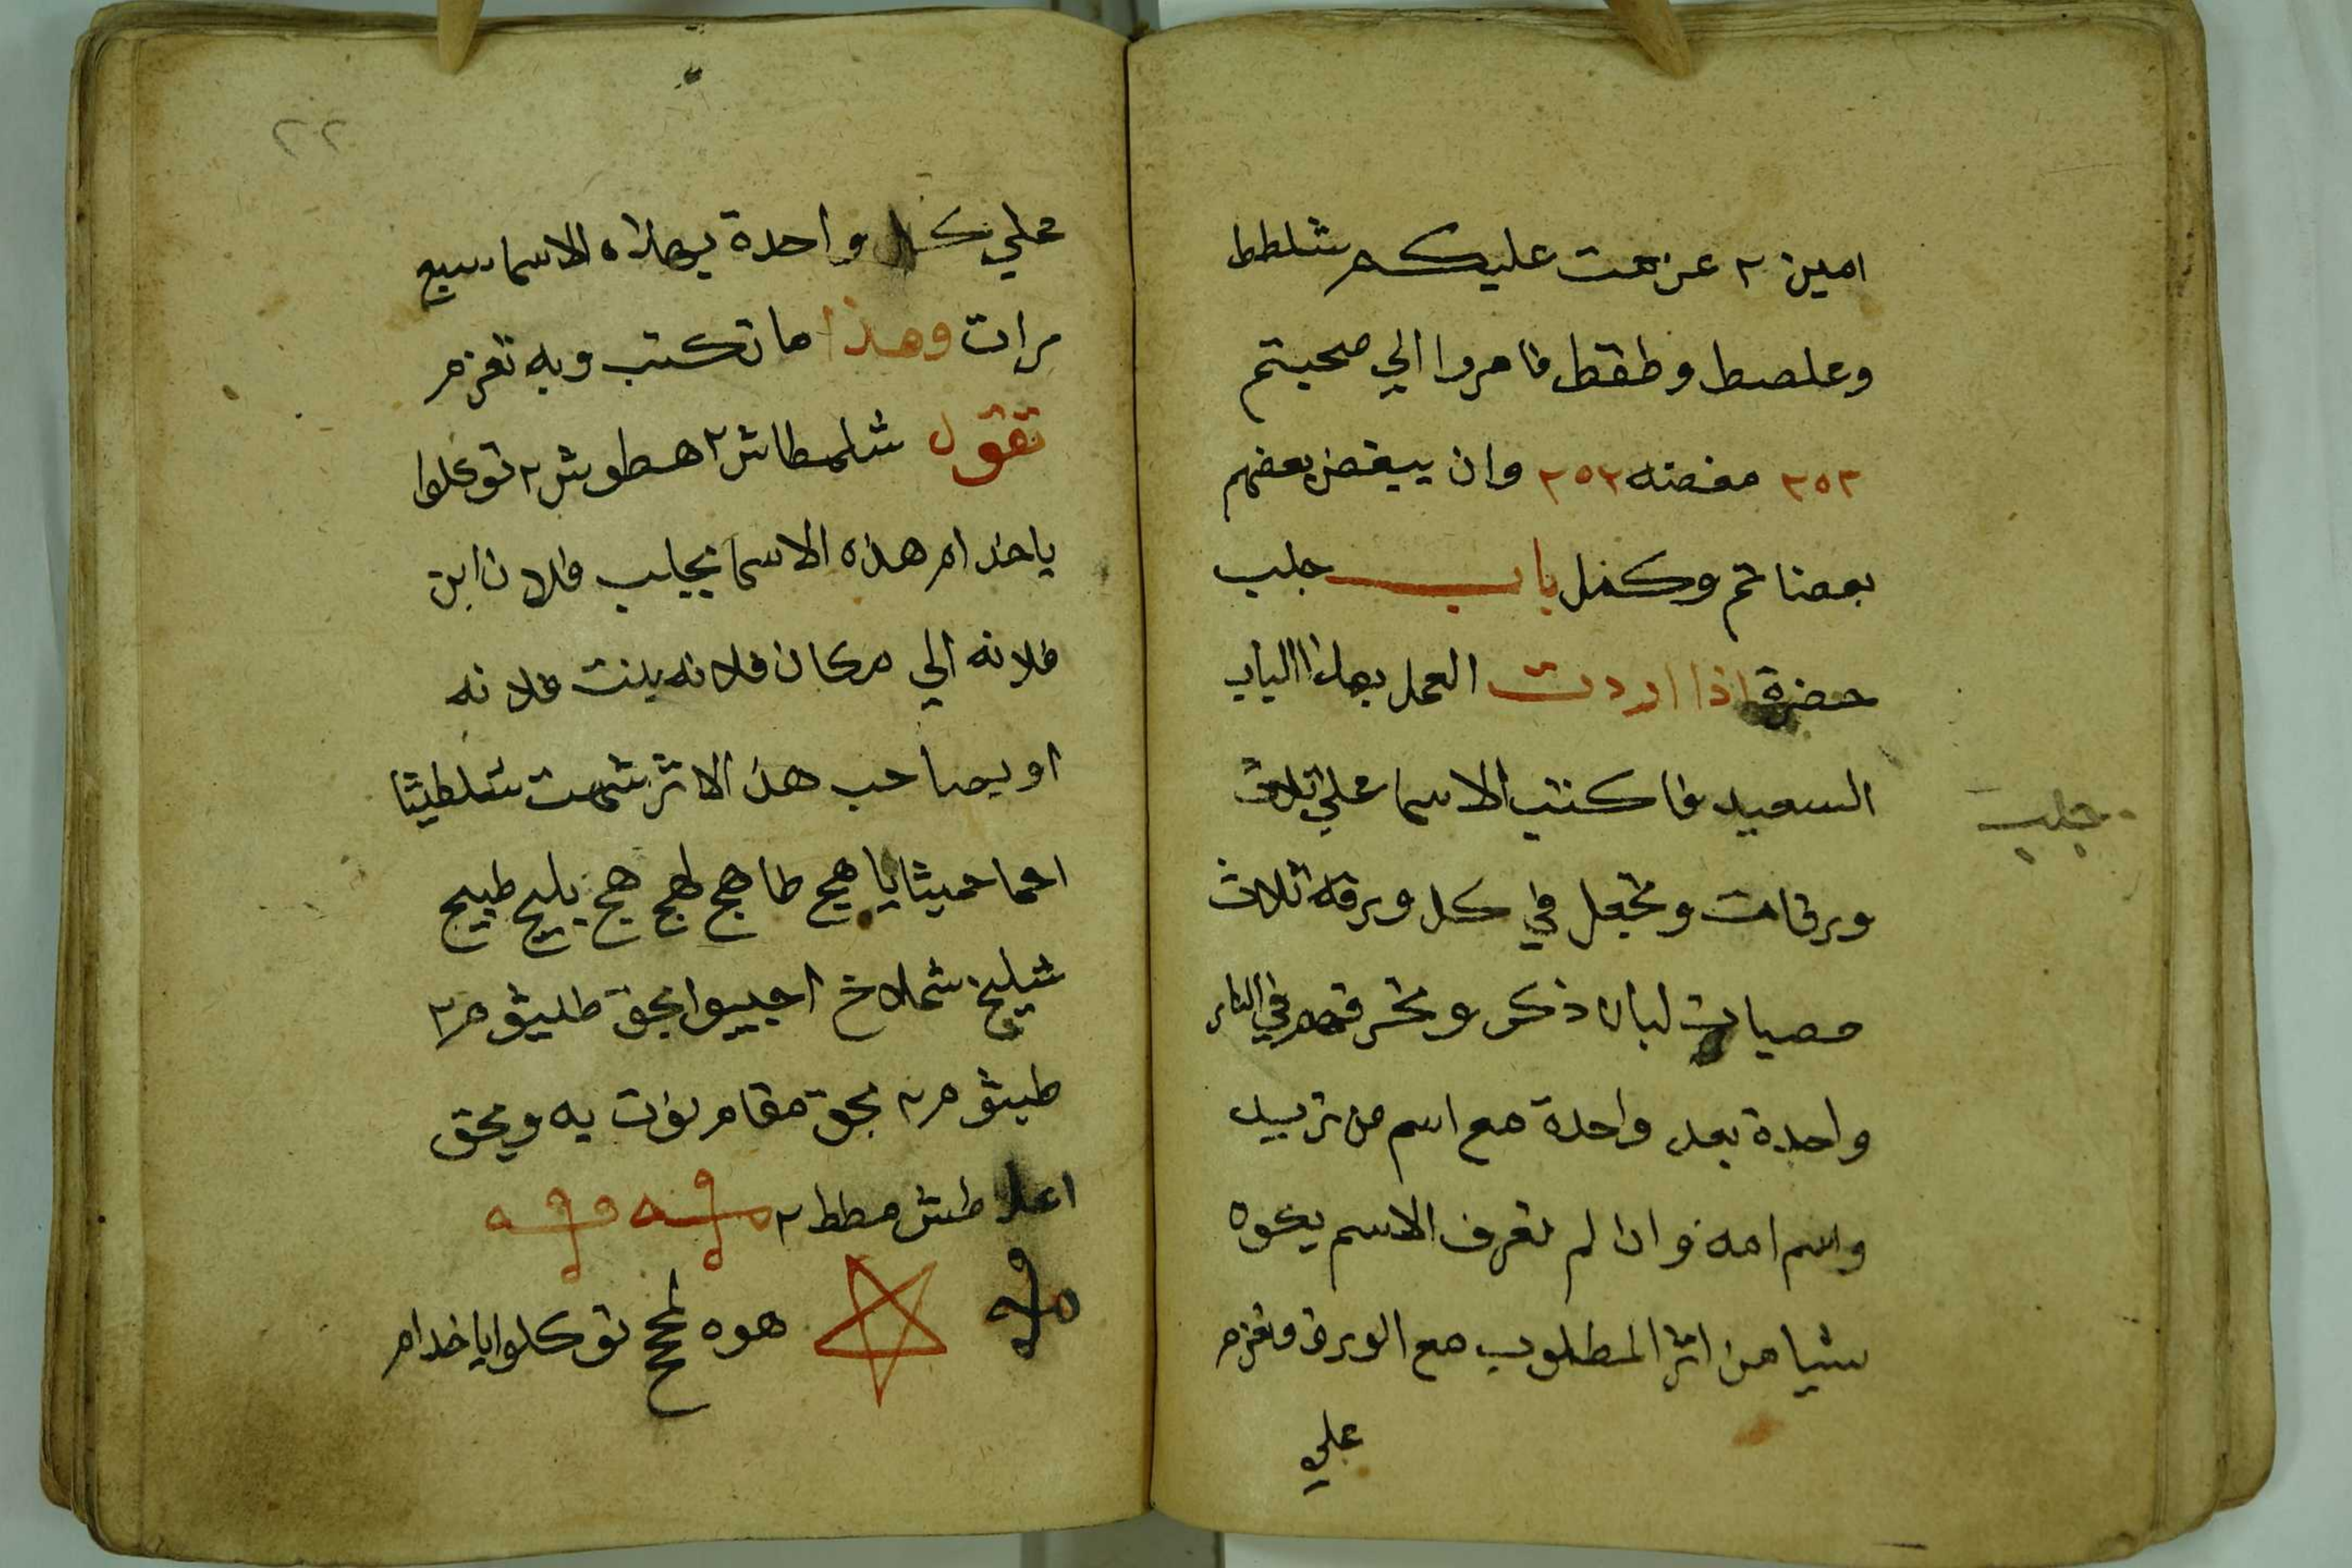 امين ٢ عزمت عليكم شلطط
وعلصط وطقط فامروا الي محبتم
٢٥٢ مغضنه ٢٥٢ وان يبغض بعضهم
بعضا تم وكفل باب جلب
حضرة اذا اردت العمل بهذا الباب
السعيد فاكتب الاسما علي ثلاث
ورقات وتجعل في كل ورقة ثلاث
حصيات لبان ذكر وتحرقهم في النار
واحدة بعد واحدة مع اسم من تريد
واسم امه وان لم تعرف الاسم يكوه
شيا من اثر المطلوب مع الورق وتعزم
علي
جلب
٢٢
علي كل واحدة بهذه الاسما سبع
مرات وهذا ما تكتب وبه تعزم
تقول شلمطاش ٢ هطوش ٢ توكلوا
ياخدام هذه الاسما بجلب فلان ابن
فلانه الي مكان فلانه بنت فلانه
او يصاحب هذ الاثر شمت شلطيثا
احما حميثا يا هيج طا هج لهج هج بليج طبيج
شيليخ شملاخ اجيبوا بحق طليثوم ٢
طيثوم ٢ بحق مقام يه وبحق
اعلا طش مطط ٢
هوه لمحح توكلوا ياخدام